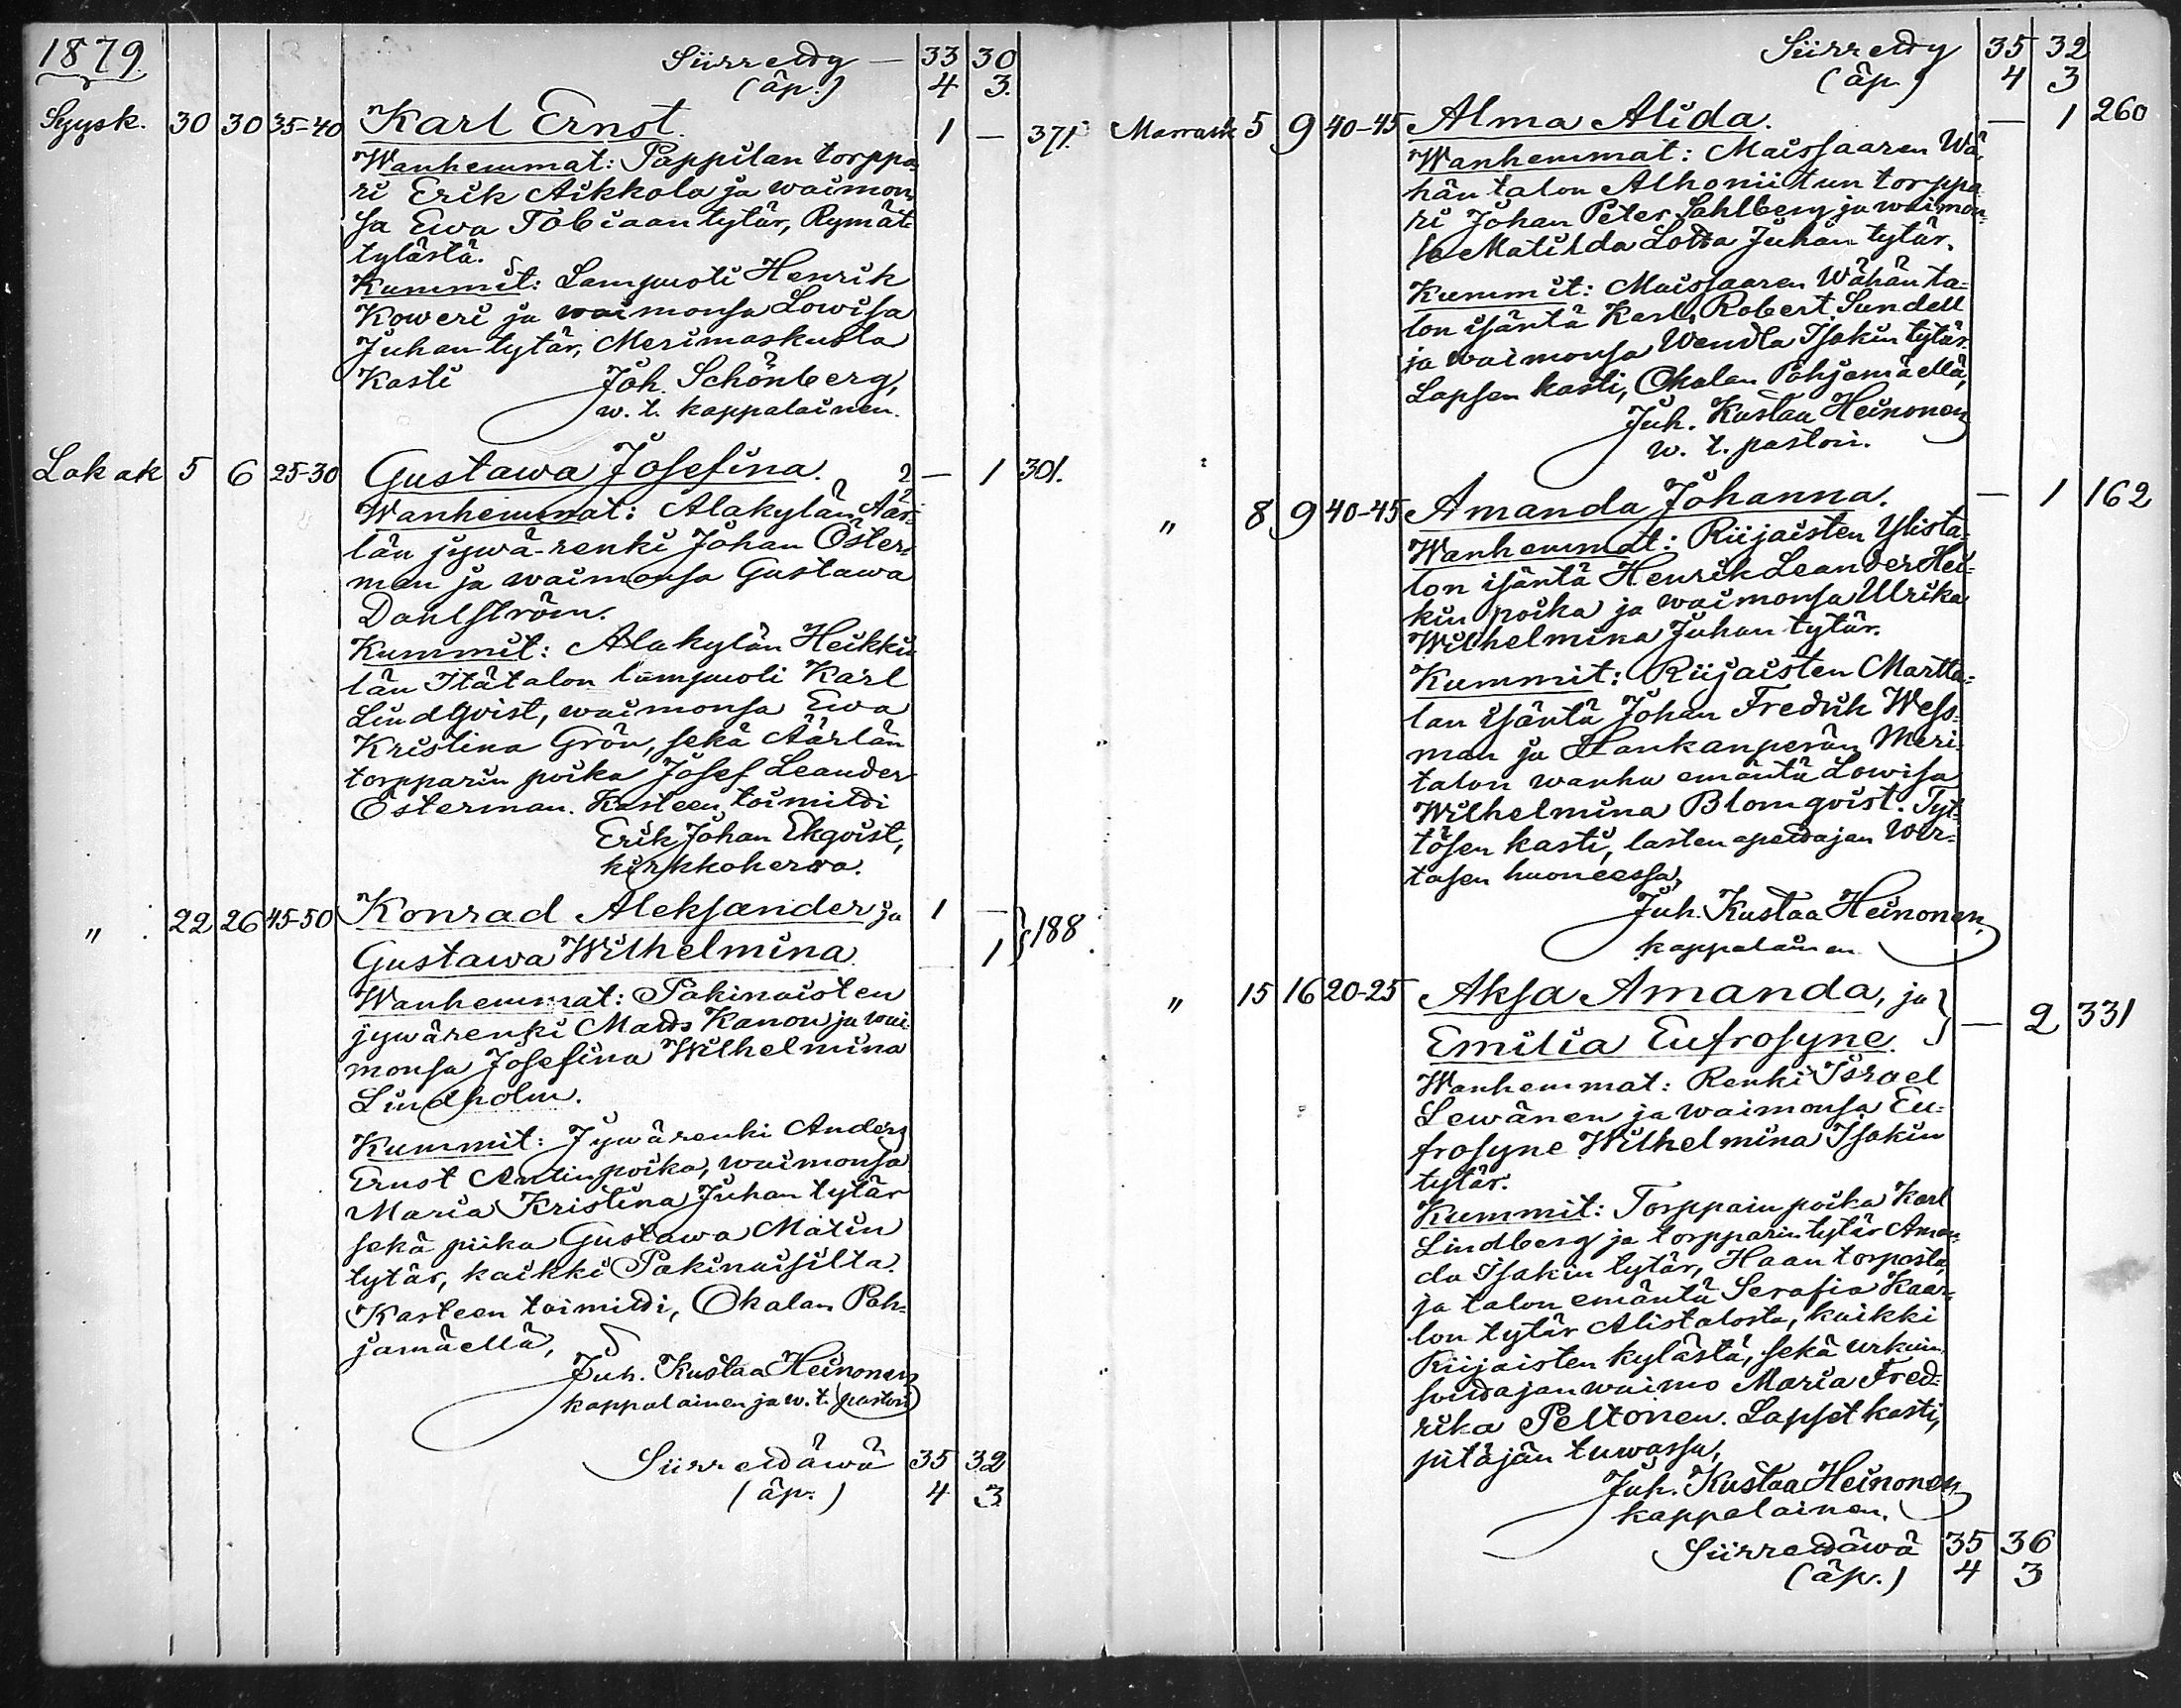 1879.
Siirretty — 33 30
(äp.) 4 3.
Syysk. 30 30 35-40 Karl Ernst. 1 — 371.
Wanhemmat: Pappilan torppa-
ri Erik Aikkola ja waimon-
sa Ewa Tobiaan tytär, Rymät-
tylästä.
Kummit: Lampuoti Henrik
Koweri ja waimonsa Lowisa
Juhan tytär, Merimaskusta
Kasti Joh. Schönberg,
w. t. kappalainen.
Lokak 5 6 25-30 Gustawa Josefina. 2 — 1 301.
Wanhemmat: Alakylän Äär-
län jywä-renki Johan Öster-
man ja waimonsa Gustawa
Dahlström.
Kummit: Alakylän Heikki-
län Itätalon lampuoti Karl
Lindqvist, waimonsa Ewa
Kristina Grön, sekä Äärlän
torpparin poika Josef Leander
Österman. Kasteen toimitti
Erik Johan Ekqvist,
kirkkoherra.
" 22 26 45-50 Konrad Aleksander ja 1 —
Gustawa Wilhelmina. — 1 } 188
Wanhemmat: Pakinaisten
jywärenki Matts Kanon ja wai-
monsa Josefina Wilhelmina
Lindholm.
Kummit: Jywärenki Anders
Ernst Antinpoika, waimonsa
Maria Kristina Juhan tytär
sekä piika Gustawa Matin
tytär, kaikki Pakinaisilta.
Kasteen toimitti, Okalan Poh-
jamäellä,
Juh. Kustaa Heinonen
kappalainen ja w. t. pastori
Siirrettäwä 35 32
(äp.) 4 3
Siirretty 35 32
(äp.) 4 3
Marrask 5 9 40-45 Alma Alida. — 1 260
Wanhemmat: Maissaaren Wä-
hän talon Alhoniitun torppa-
ri Johan Peter Sahlberg ja waimon-
sa Matilda Lotta Juhan tytär.
Kummit: Maissaaren Wähän ta-
lon isäntä Karl Robert Sundell
ja waimonsa Wendla Isakin tytär.
Lapsen kasti, Okalan Pohjamäellä,
Juh. Kustaa Heinonen
w. t. pastori.
" 8 9 40-45 Amanda Johanna. — 1 162
Wanhemmat: Riijaisten Ylista-
lon isäntä Henrik Leander Hei-
kin poika ja waimonsa Ulrika
Wilhelmina Juhan tytär.
Kummit: Riijaisten Martta-
lan isäntä Johan Fredrik Wess-
man ja Hankanperän Meri-
talon wanha emäntä Lowisa
Wilhelmina Blomqvist. Tyt-
tösen kasti, lasten opettajan Wir-
tasen huoneessa,
Juh. Kustaa Heinonen,
kappalainen
" 15 16 20-25 Aksa Amanda, ja
Emilia Eufrosyne. } — 2 331
Wanhemmat: Renki Israel
Lewänen ja waimonsa Eu-
frosyne Wilhelmina Isakin
tytär.
Kummit: Torpparin poika Karl
Lindberg ja torpparin tytär Aman-
da Isakin tytär, Haan torpasta,
ja talon emäntä Serafia Kaar-
lon tytär Alistalosta, kaikki
Riijaisten kylästä, sekä urkuin
soittajan waimo Maria Fred-
rika Peltonen. Lapset kasti,
pitäjän tuwassa,
Juh. Kustaa Heinonen
kappalainen.
Siirrettäwä 35 36
(äp.) 4 3